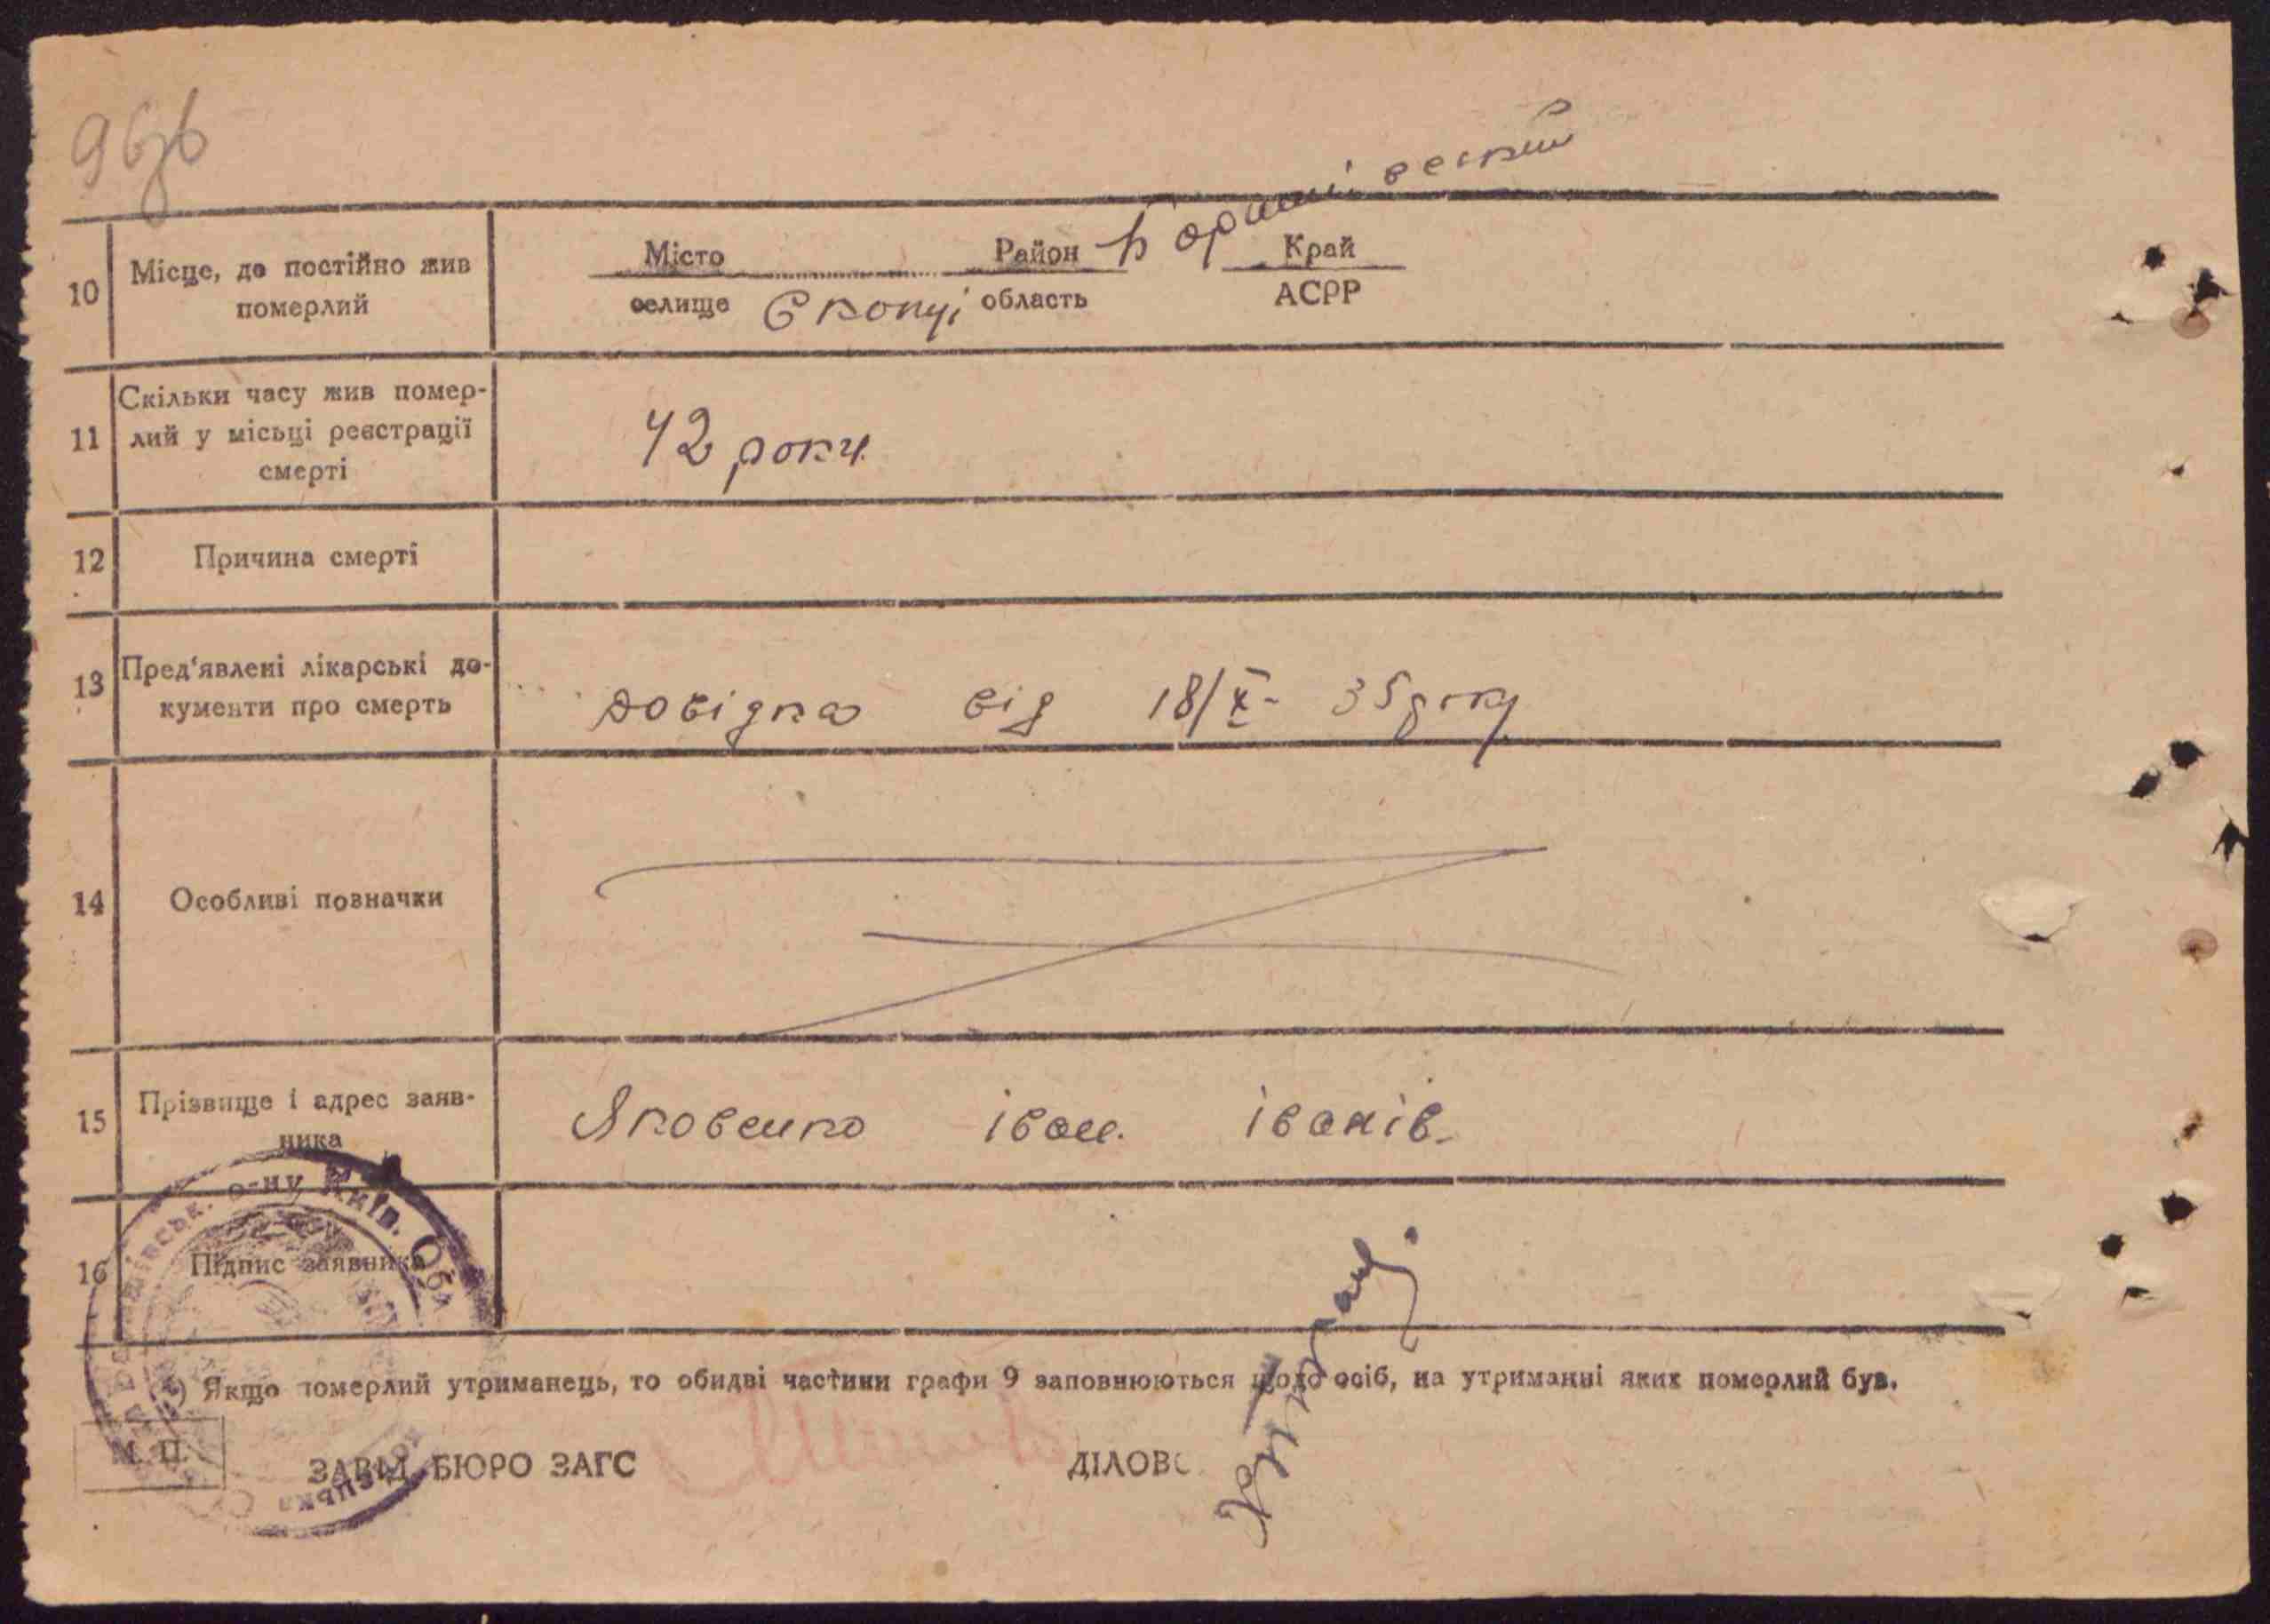 96зв
10 Місце, де постійно жив померлий
Місто Район Боришпівський Край
селище Єкопці область АСРР
11 Скільки часу жив помер-
лий у місьці реєстрації
смерті
42 роки
12 Причина смерті
13 Пред'явлені лікарські до-
кументи про смерть
довідка від 18/X- 35 року
14 Особливі позначки
15 Прізвище і адрес заяв-
ника
Яковенко іван. іванів.
16 Підпис заявника
р-ну Київ. Обл
*) Якщо померлий утриманець, то обидві частини графи 9 заповнюються щодо осіб, на утриманні яких померлий був.
М. П.
ЗАВІД. БЮРО ЗАГС
ДІЛОВ